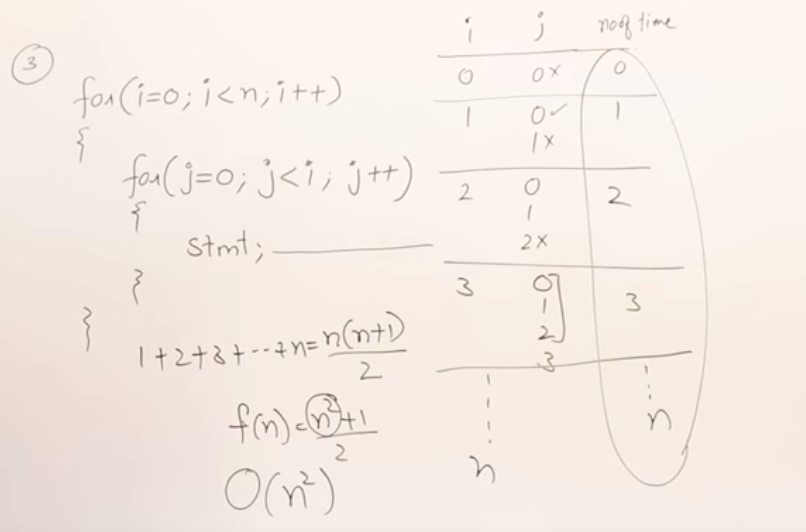 3
for(i=0; i<n; i++)
{
for(j=0; j<i; j++)
{
stmt;
}
}
1+2+3+---+n = n(n+1)/2
f(n) = n²+1/2
O(n²)
i j no of time
0 0× 0
1 0✓ 1
1×
2 0 2
1
2×
3 0 3
1
2
3
n n